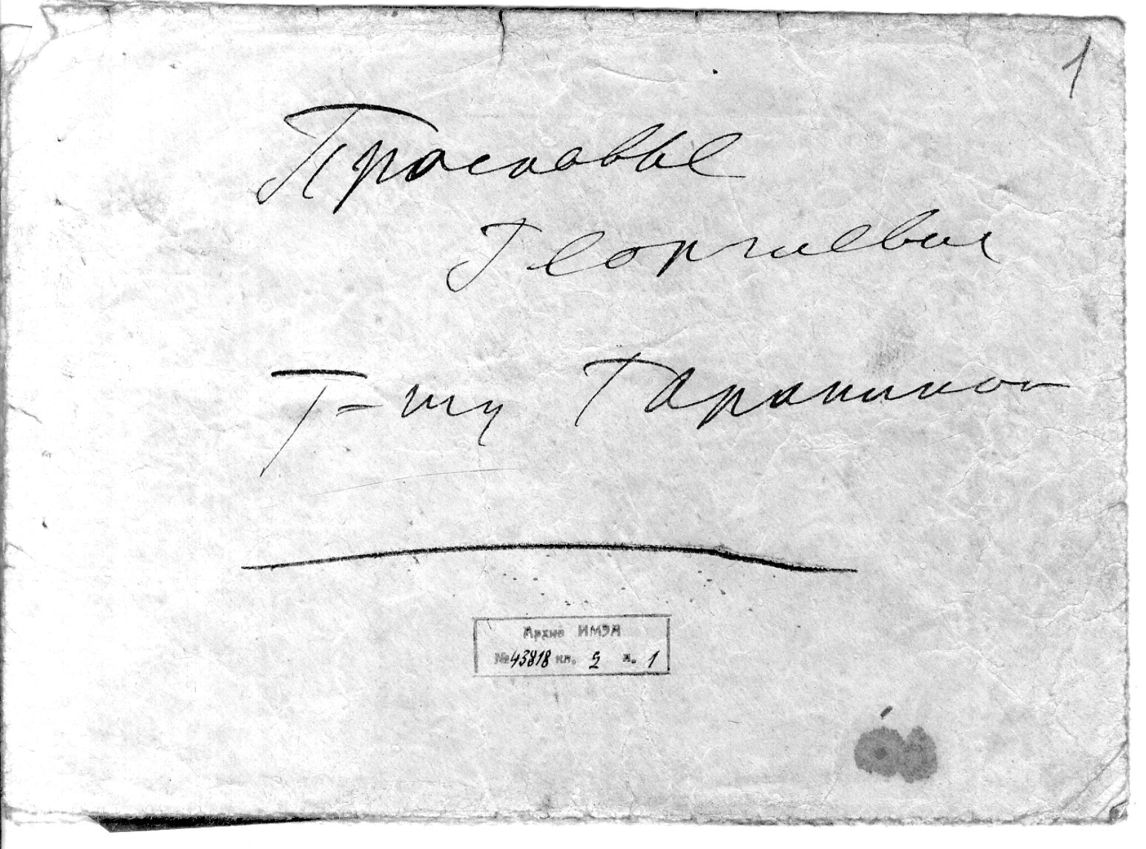 Прасковье
Георгиевне
Гараниной
1
Архив ИМЭЛ
№ 43818 кп. 2 л. 1